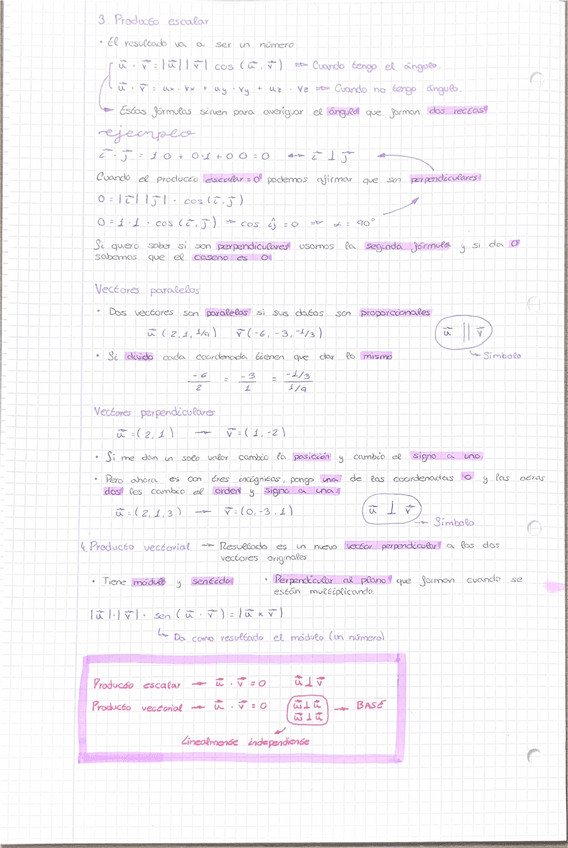 3. Producto escalar
• El resultado va a ser un número
u⃗ · v⃗ = |u⃗| |v⃗| cos (u⃗, v⃗) ⇒ Cuando tengo el ángulo.
u⃗ · v⃗ = ux · vx + uy · vy + uz · vz ⇒ Cuando no tengo ángulo.
→ Estas fórmulas sirven para averiguar el ángulo que forman dos rectas
ejemplo
i⃗ · j⃗ = 1·0 + 0·1 + 0·0 = 0 ↔ i⃗ ⊥ j⃗
Cuando el producto escalar = 0 podemos afirmar que son perpendiculares
0 = |i⃗| |j⃗| · cos(i⃗, j⃗)
0 = 1 · 1 · cos (i⃗, j⃗) ⇒ cos ij = 0 ⇒ α = 90°
Si quiero saber si son perpendiculares usamos la segunda fórmula y si da 0
sabemos que el coseno es 0
Vectores paralelos
• Dos vectores son paralelos si sus datos son proporcionales
u⃗ (2, 1, 1/9) v⃗ (-6, -3, -1/3)
u⃗ || v⃗
→ Símbolo
• Si divido cada coordenada tienen que dar lo mismo
-6/2 = -3/1 = -1/3 / 1/9
Vectores perpendiculares
u⃗ = (2, 1) → v⃗ = (1, -2)
• Si me dan un solo valor cambio la posición y cambio el signo a uno.
• Pero ahora es con tres incógnitas, pongo una de las coordenadas 0 y las otras
dos les cambio el orden y signo a una.
u⃗ = (2, 1, 3) → v⃗ = (0, -3, 1)
u⃗ ⊥ v⃗
→ Símbolo
4. Producto vectorial → Resultado es un nuevo vector perpendicular a los dos
vectores originales
• Tiene módulo y sentido • Perpendicular al plano que forman cuando se
están multiplicando.
|u⃗| · |v⃗| · sen (u⃗ · v⃗) = |u⃗ × v⃗|
↳ Da como resultado el módulo (un número)
Producto escalar → u⃗ · v⃗ = 0 u⃗ ⊥ v⃗
Producto vectorial → u⃗ · v⃗ = 0 w⃗ ⊥ u⃗ → BASE
w⃗ ⊥ u⃗
Linealmente independiente